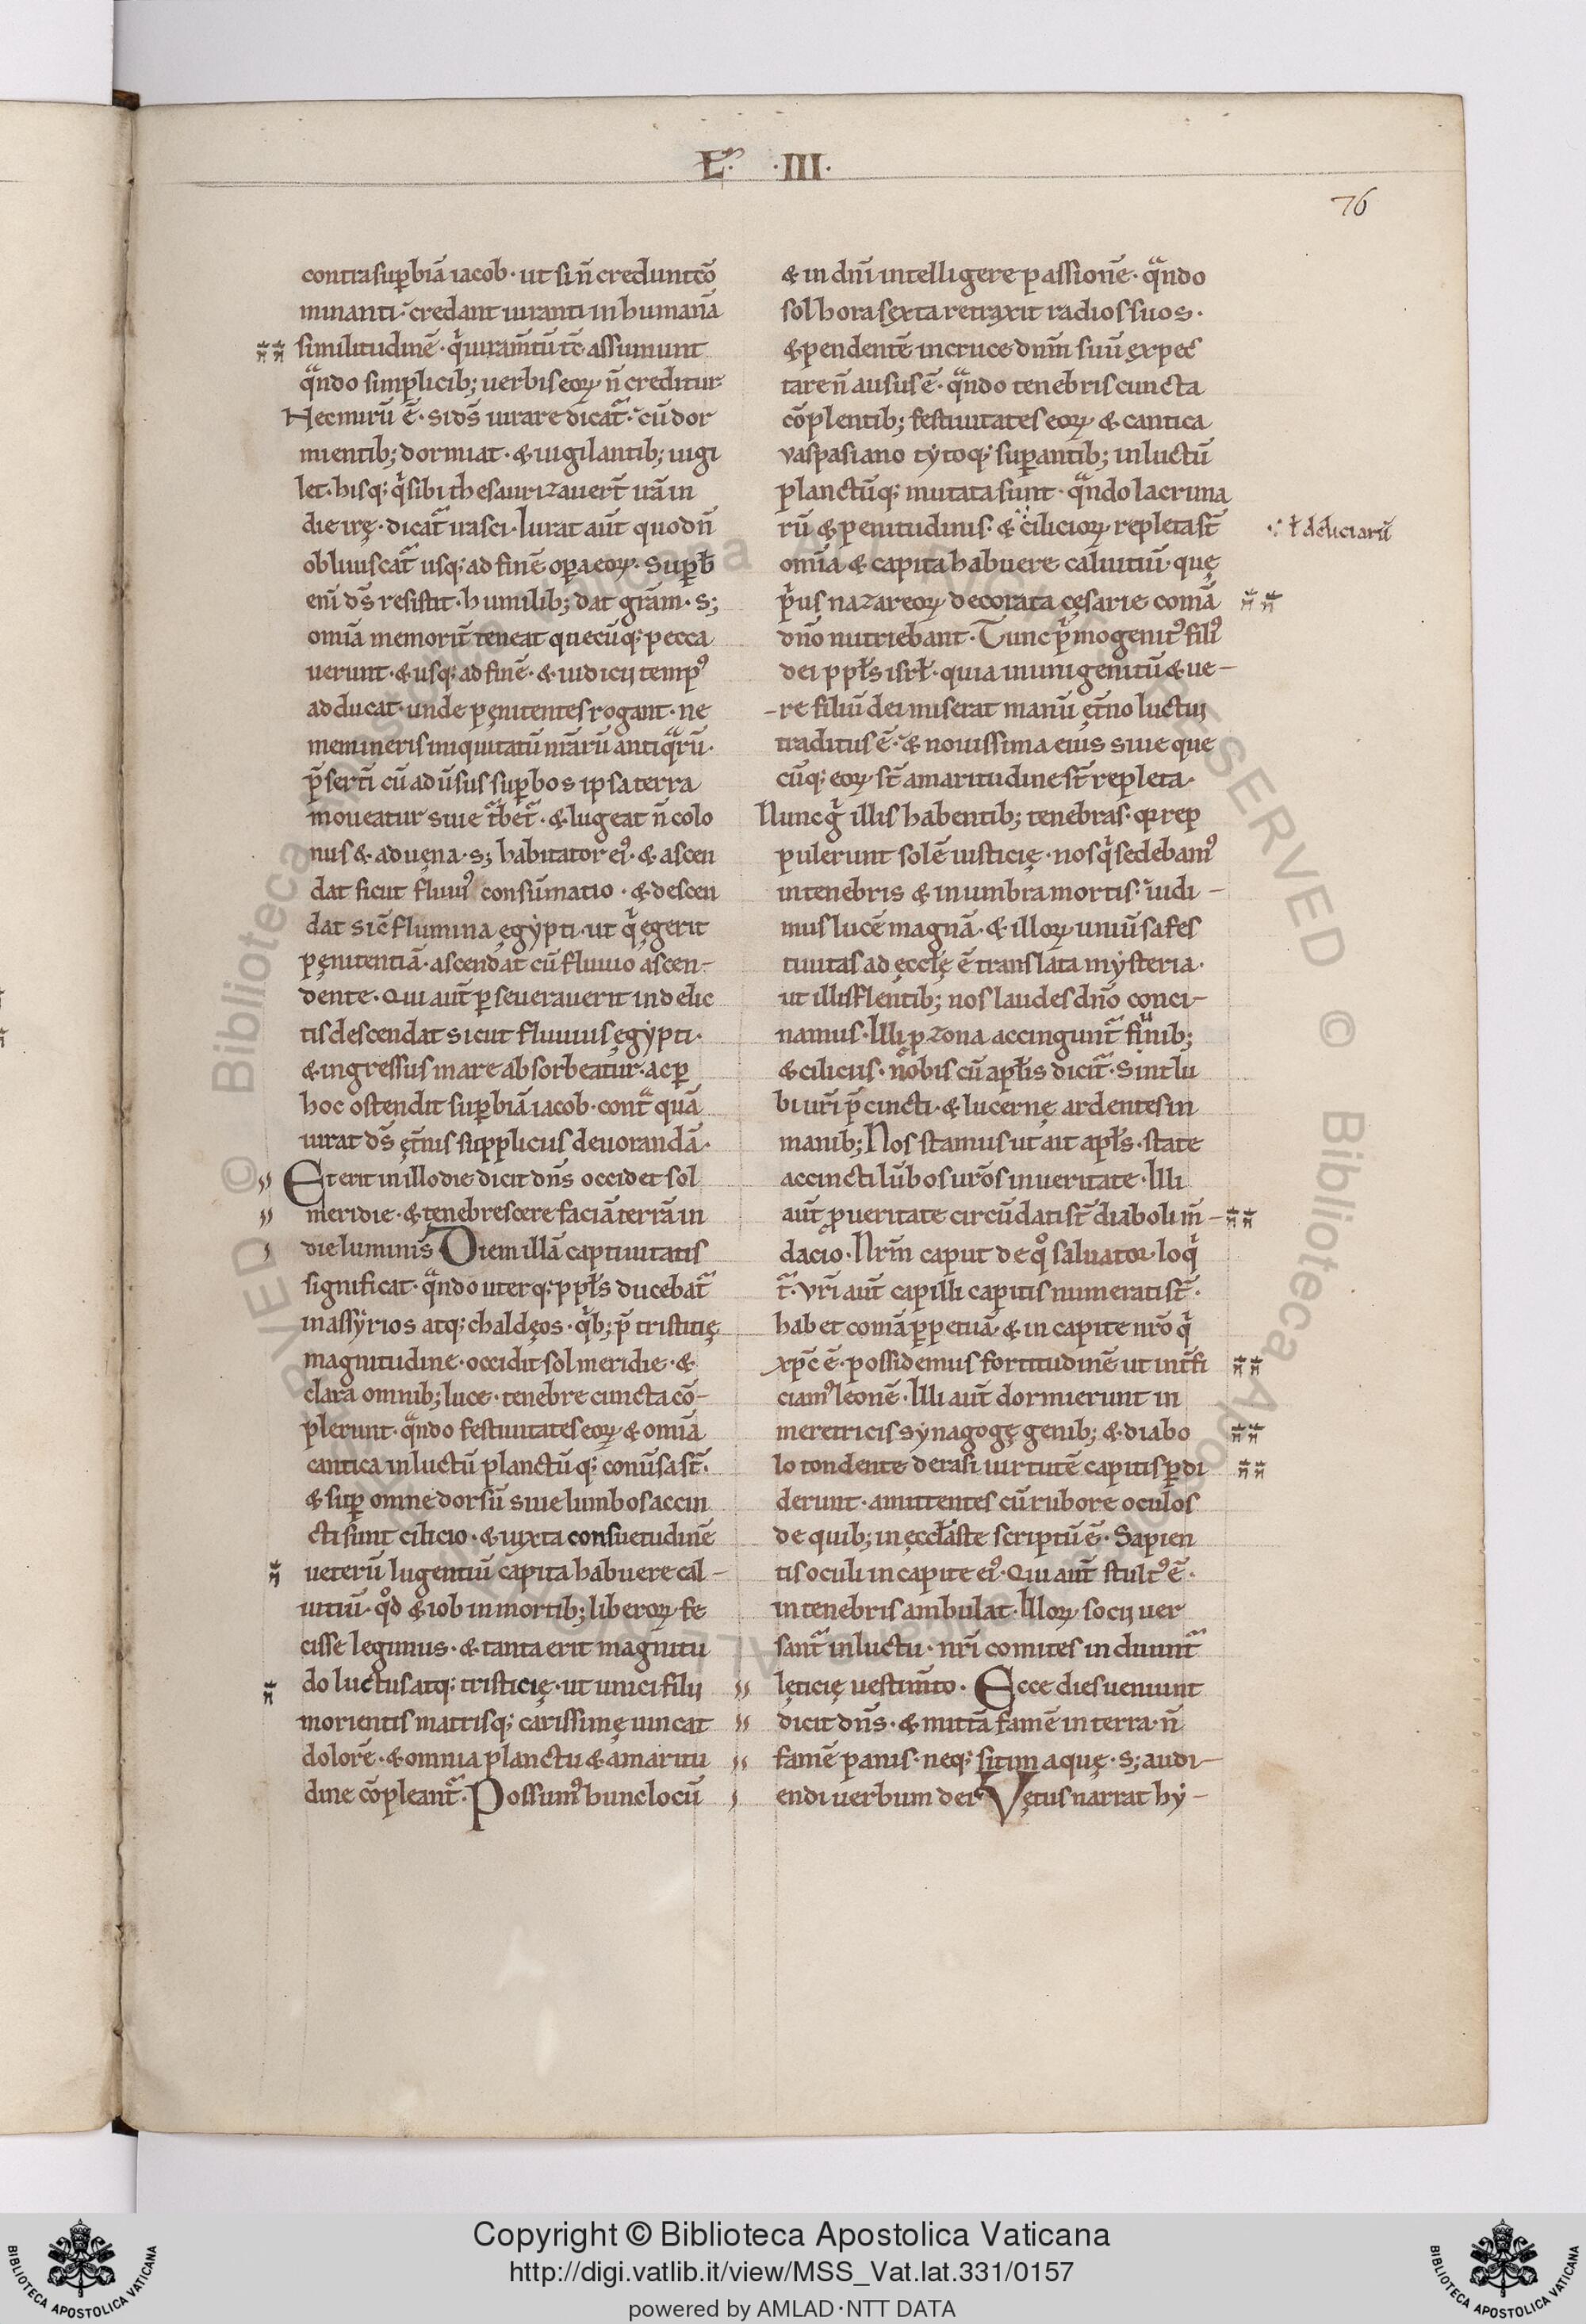 L. ·III·
76
contra suꝑbiā iacob· ut si n̄ credunt cō
minanti· credant iuranti in humanā
similitudinē· qͥ iuram̄tū tc̄ assumunt
qᷓndo simplicib; uerbis eoꝝ n̄ creditur
Nec mirū ē· si ds̄ iurare dicat᷑· cū dor
mientib; dormiat· & uigilantib; uigi
let· hisq; qͥ sibi thesaurizauer̄t irā in
die irę· dicat᷑ irasci· Iurat aūt quod n̄
obliuiscat᷑ usq; ad finē oꝑa eoꝝ· Suꝑb̄
eni ds̄ resistit· humilib; dat gr̄am· s;
omīa memorit̄ teneat quecūq; pecca
uerunt· & usq; ad finē· & iudicii tempꝰ
adducat· unde pęnitentes rogant· ne
memineris iniquitatū nr̄arū antiqᷓrū·
p̄serti cū adūsus suꝑbos ipsa terra
moueatur siue t̄bet᷑· & lugeat n̄ colo
nus & aduęna· s; habitator eiꝰ· & ascen
dat sicut fluuiꝰ consūmatio· & descen
dat sic̄ flumina ęgẏpti· ut qͥ ęgerit
pęnitentiā· ascendat cū fluuio ascen-
dente· Qui aūt perseuerauerit in delic
tis descendat sicut fluuius ęgẏpti·
& ingressus mare absorbeatur· ac ꝑ
hoc ostendit suꝑbiā iacob· contᷓ quā
iurat ds̄ ęt̄nis suppliciis deuorandā·
Et erit in illo die dicit dn̄s occidet sol
meridie· & tenebrescere faciā terrā in
die luminis Diem illā captiuitatis
significat· qᷓndo uterq; ppl̄s ducebat᷑
in assẏrios atq; chaldęos· qͥb; p̄ tristitię
magnitudine· occidit sol meridie· &
clara omnib; luce· tenebre cuncta cō-
plerunt· qᷓndo festiuitates eoꝝ & omīa
cantica in luctū planctūq; conūsa st̄·
& suꝑ omne dorsū siue lumbos accin
cti sunt cilicio· & iuxta consuetudinē
ueterū lugentiū capita habuere cal-
uitiū· qͦd & iob in mortib; liberoꝝ fe
cisse legimus· & tanta erit magnitu
do luctus atq; tristicię· ut unici filii
morientis matrisq; carissimę uincat
dolorē· & omnia planctu & amaritu
dine cōpleant᷑· Possumꝰ hunc locū
& in dn̄i intelligere passionē· qᷓndo
sol hora sexta retraxit radios suos·
& pendentē in cruce dnm̄ suū expec
tare n̄ ausus ē· qᷓndo tenebris cuncta
cōplentib; festiuitates eoꝝ & cantica
vaspasiano tẏtoq; suꝑantib; in luctū
planctūq; mutata sunt· qᷓndo lacrima
rū & penitudinis· & cilicioꝝ repleta st̄
ł deliciarū
omīa & capita habuere caluitiū· quę
pͥus nazareoꝝ decorata cęsarie comā
dn̄o nutriebant· Tunc pͥmogenitꝰ filiꝰ
dei ppl̄s isrł· quia in unigenitū & ue-
-re filiū dei miserat manū ęt̄no luctui
traditus ē· & nouissima eius siue que
cūq; eoꝝ st̄ amaritudine st̄ repleta·
Nunc gͥ illis habentib; tenebras· q̄a rep
pulerunt solē iusticię· nos qͥ sedebamꝰ
in tenebris & in umbra mortis· uidi-
mus lucē magnā· & illoꝝ uniūsa fes
tiuitas ad ęcclę ē translata mẏsteria·
ut illis flentib; nos laudes dn̄o conci-
namus· Illi ꝓ zona accingunt᷑ funib;
& ciliciis· nobis cū apl̄is dicit᷑· Sint lū
bi ur̄i p̄cincti· & lucernę ardentes in
manib; Nos stamus ut ait apl̄s· state
accincti lūbos ur̄os in ueritate· Illi
aūt ꝓ ueritate circūdati st̄ diaboli m̄-
dacio· Nr̄m caput de qͦ saluator loqͥ
t᷑· Vr̄i aūt capilli capitis numerati st̄·
habet comā ꝑpetuā· & in capite nr̄o qͥ
xp̄c ē· possidemus fortitudinē ut int̄fi
ciamꝰ leonē· Illi aūt dormierunt in
meretricis sẏnagogę genib; & diabo
lo tondente derasi uirtutē capitis ꝑdi
derunt· amittentes cū rubore oculos
de quib; in ęccl̄aste scriptū ē· Sapien
tis oculi in capite eiꝰ· Qui aūt stultꝰ ē·
in tenebris ambulat· Illoꝝ socii uer
sant᷑ in luctu· nr̄i comites induunt᷑
lęticię uestim̄to· Ecce dies ueniunt
dicit dn̄s· & mittā famē in terra· n̄
famē panis· neq; sitim aquę· s; audi-
endi uerbum dei Vętus narrat hẏ-
Copyright © Biblioteca Apostolica Vaticana
http://digi.vatlib.it/view/MSS_Vat.lat.331/0157
powered by AMLAD·NTT DATA
BIBLIOTECA APOSTOLICA VATICANA
BIBLIOTECA APOSTOLICA VATICANA